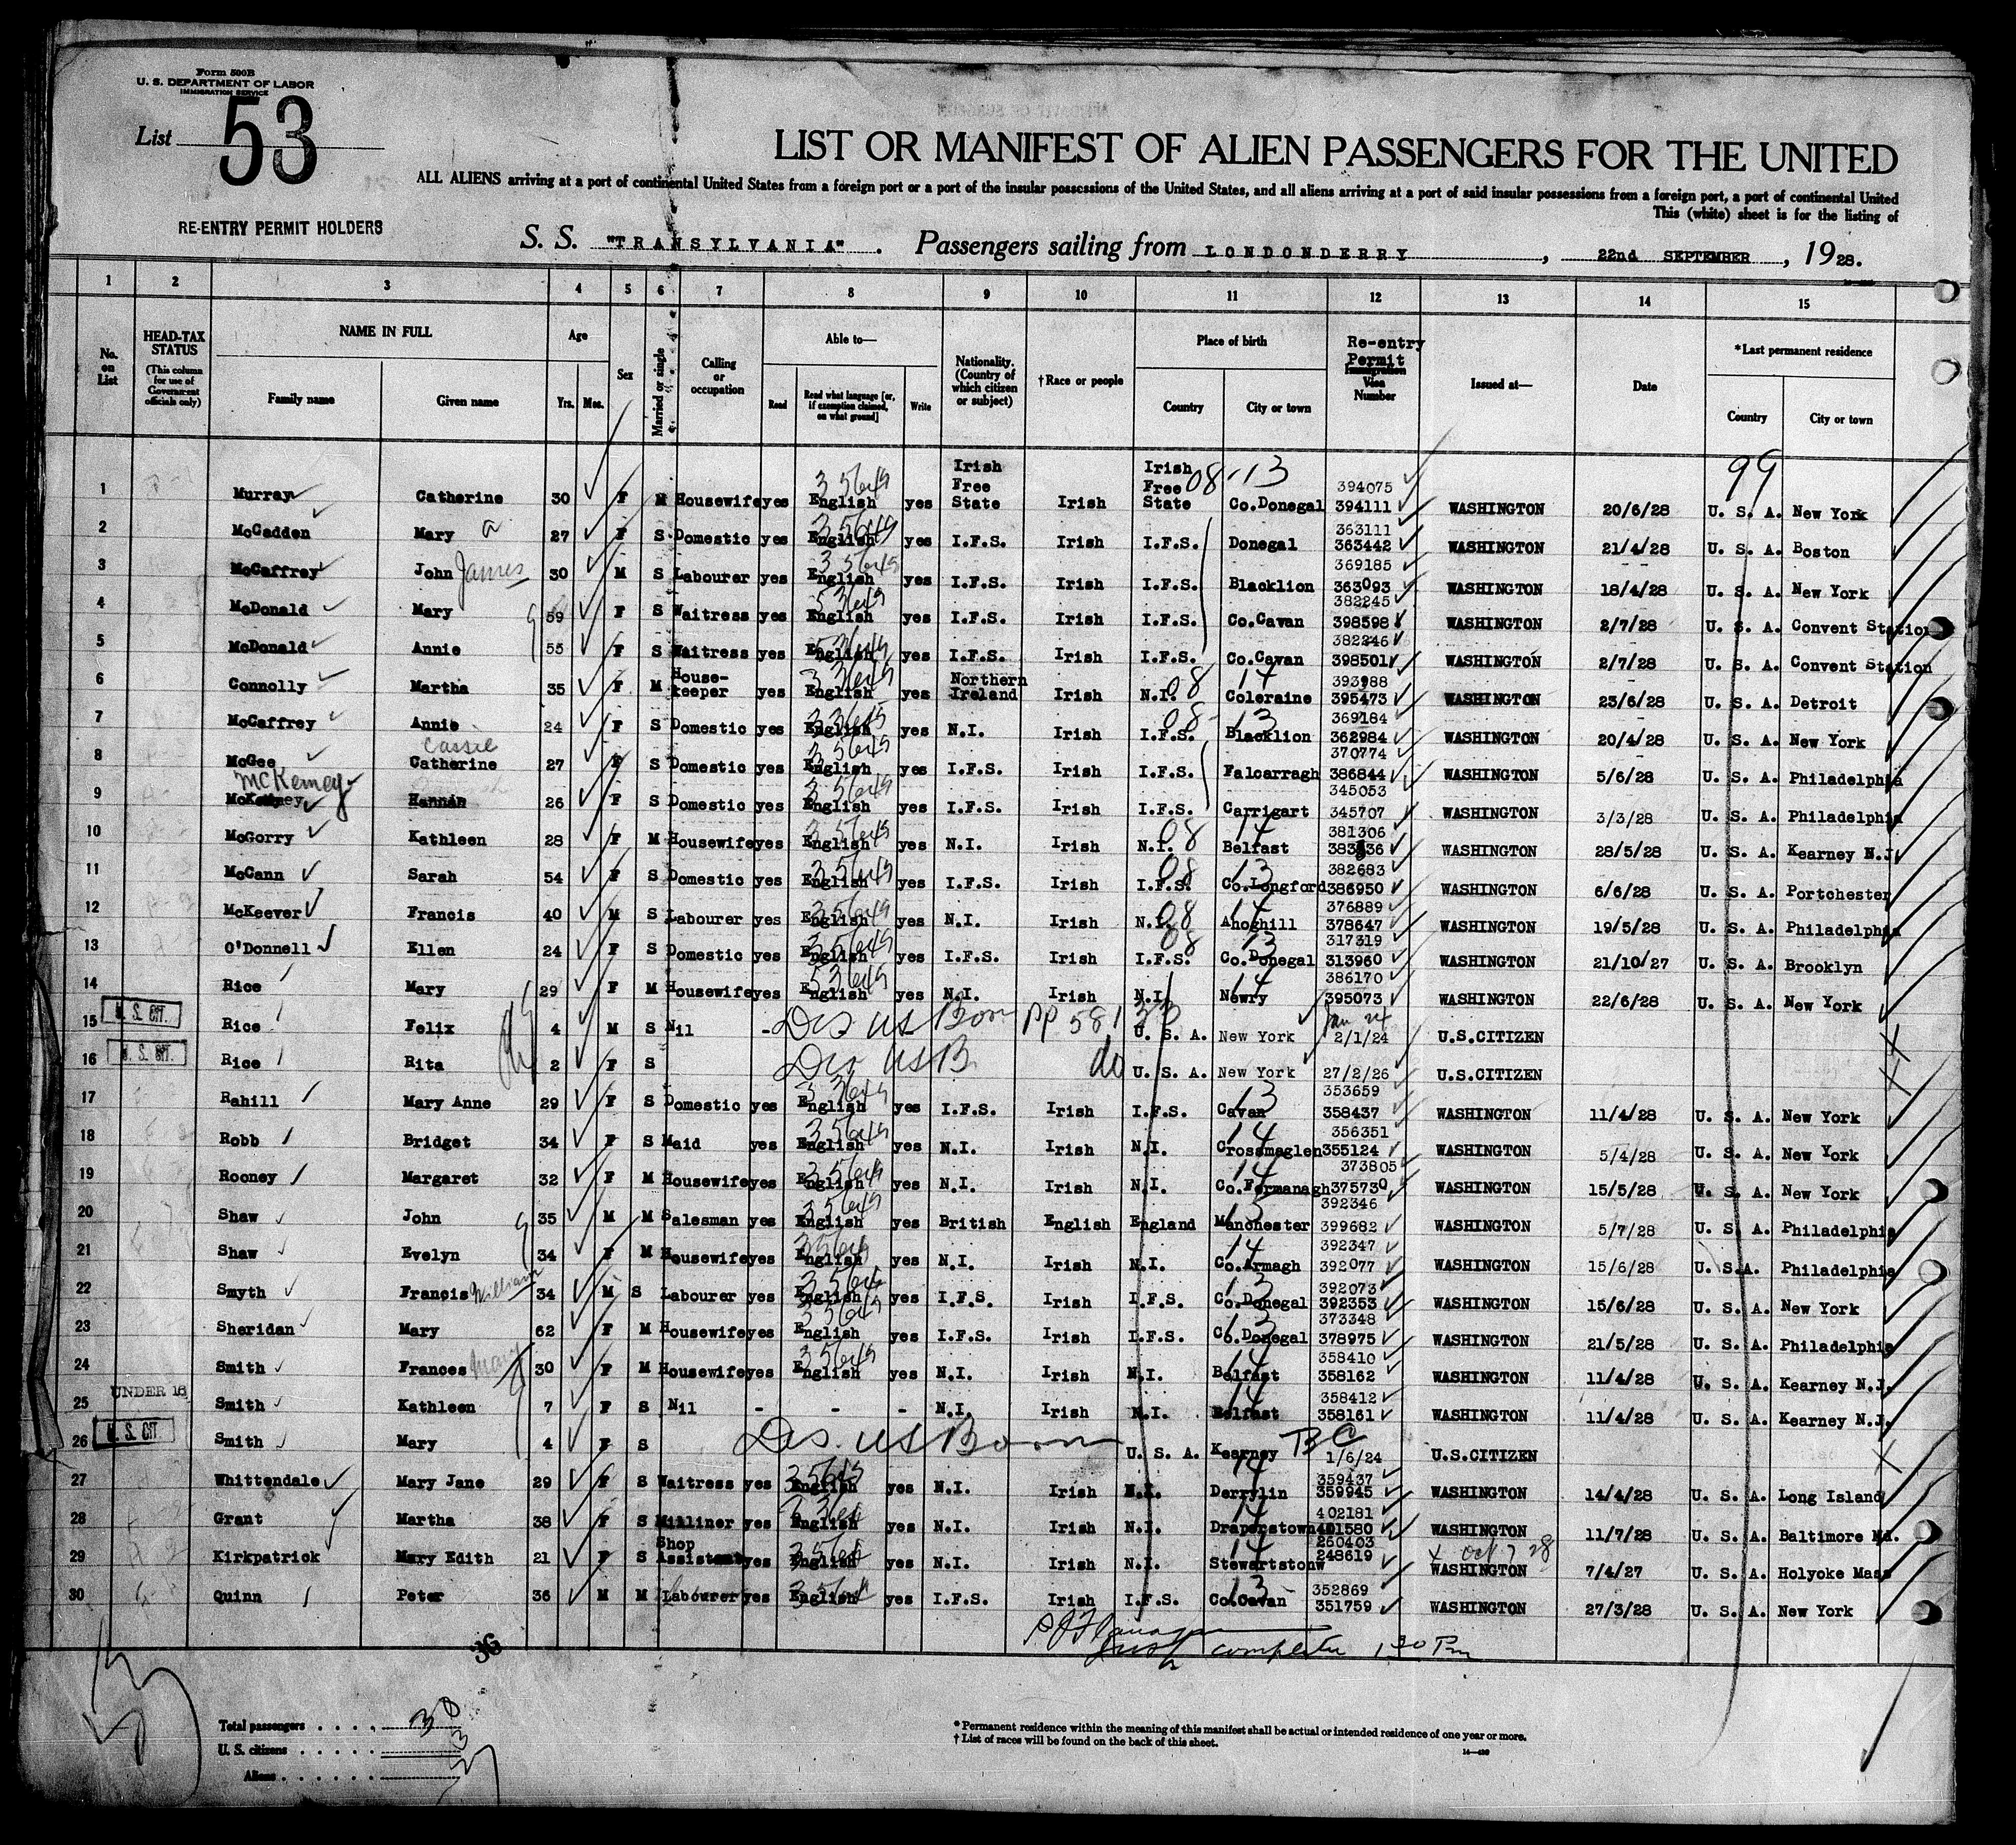 Form 500B
U. S. DEPARTMENT OF LABOR
IMMIGRATION SERVICE
List 53
LIST OR MANIFEST OF ALIEN PASSENGERS FOR THE UNITED
ALL ALIENS arriving at a port of continental United States from a foreign port or a port of the insular possessions of the United States, and all aliens arriving at a port of said insular possessions from a foreign port, a port of continental United
This (white) sheet is for the listing of
RE-ENTRY PERMIT HOLDERS
S. S. "TRANSYLVANIA". Passengers sailing from LONDONDERRY, 22nd SEPTEMBER, 1928.
1 2 3 4 5 6 7 8 9 10 11 12 13 14 15
No. on List HEAD-TAX STATUS (This column for use of Government officials only) NAME IN FULL Family name Given name Age Yrs. Mos. Sex Married or single Calling or occupation Able to— Read Read what language [or, if exemption claimed, on what ground] Write Nationality. (Country of which citizen or subject) †Race or people Place of birth Country City or town Re-entry Permit Immigration Visa Number Issued at— Date *Last permanent residence Country City or town
99
1 Murray Catherine 30 F M Housewife yes English yes Irish Free State Irish Irish Free State 08-13 Co.Donegal 394075 394111 WASHINGTON 20/6/28 U. S. A. New York
2 McCadden Mary a 27 F S Domestic yes English yes I.F.S. Irish I.F.S. Donegal 363111 363442 WASHINGTON 21/4/28 U. S. A. Boston
3 McCaffrey John James 30 M S Labourer yes English yes I.F.S. Irish I.F.S. Blacklion 369185 363093 WASHINGTON 18/4/28 U. S. A. New York
4 McDonald Mary 59 F S Waitress yes English yes I.F.S. Irish I.F.S. Co.Cavan 382245 398598 WASHINGTON 2/7/28 U. S. A. Convent Station
5 McDonald Annie 55 F S Waitress yes English yes I.F.S. Irish I.F.S. Co.Cavan 382246 398501 WASHINGTON 2/7/28 U. S. A. Convent Station
6 Connolly Martha 35 F M House-keeper yes English yes Northern Ireland Irish N.I. 08 14 Coleraine 393988 395473 WASHINGTON 23/6/28 U. S. A. Detroit
7 McCaffrey Annie 24 F S Domestic yes English yes N.I. Irish I.F.S. 08-13 Blacklion 369184 362984 WASHINGTON 20/4/28 U. S. A. New York
8 McGee Cassie Catherine 27 F S Domestic yes English yes I.F.S. Irish I.F.S. Falcarragh 370774 386844 WASHINGTON 5/6/28 U. S. A. Philadelphia
9 McKemey Hannah 26 F S Domestic yes English yes I.F.S. Irish I.F.S. Carrigart 345053 345707 WASHINGTON 3/3/28 U. S. A. Philadelphia
10 McGorry Kathleen 28 F M Housewife yes English yes N.I. Irish N.I. 08 14 Belfast 381306 WASHINGTON 28/5/28 U. S. A. Kearney N.J.
11 McCann Sarah 54 F S Domestic yes English yes I.F.S. Irish I.F.S. 08 13 Co.Longford 382683 386950 WASHINGTON 6/6/28 U. S. A. Portchester
12 McKeever Francis 40 M S Labourer yes English yes N.I. Irish N.I. 08 14 Ahoghill 376889 378647 WASHINGTON 19/5/28 U. S. A. Philadelphia
13 O'Donnell Ellen 24 F S Domestic yes English yes I.F.S. Irish I.F.S. 08 13 Co.Donegal 317319 313960 WASHINGTON 21/10/27 U. S. A. Brooklyn
14 Rice Mary 29 F M Housewife yes English yes N.I. Irish N.I. 14 Newry 386170 395073 WASHINGTON 22/6/28 U. S. A. New York
U. S. CIT. 15 Rice Felix 4 M S Nil - Dis US Born pp 58133 U. S. A. New York Jan 24 2/1/24 U.S.CITIZEN
U. S. CIT. 16 Rice Rita 2 F S Dis US B do U. S. A. New York 27/2/26 U.S.CITIZEN
17 Rahill Mary Anne 29 F S Domestic yes English yes I.F.S. Irish I.F.S. 13 Cavan 353659 358437 WASHINGTON 11/4/28 U. S. A. New York
18 Robb Bridget 34 F S Maid yes English yes N.I. Irish N.I. 14 Crossmaglen 356351 355124 WASHINGTON 5/4/28 U. S. A. New York
19 Rooney Margaret 32 F M Housewife yes English yes N.I. Irish N.I. 14 Co.Fermanagh 373805 375730 WASHINGTON 15/5/28 U. S. A. New York
20 Shaw John 35 M M Salesman yes English yes British English England 13 Manchester 392346 399682 WASHINGTON 5/7/28 U. S. A. Philadelphia
21 Shaw Evelyn 34 F M Housewife yes English yes N.I. Irish N.I. 14 Co.Armagh 392347 392077 WASHINGTON 15/6/28 U. S.A. Philadelphia
22 Smyth Francis William 34 M S Labourer yes English yes I.F.S. Irish I.F.S. 13 Co.Donegal 392073 392353 WASHINGTON 15/6/28 U. S. A. New York
23 Sheridan Mary 62 F M Housewife yes English yes I.F.S. Irish I.F.S. 13 Co.Donegal 373348 378975 WASHINGTON 21/5/28 U. S. A. Philadelphia
24 Smith Frances Mary 30 F M Housewife yes English yes N.I. Irish N.I. 14 Belfast 358410 358162 WASHINGTON 11/4/28 U. S. A. Kearney N.J.
UNDER 16 25 Smith Kathleen 7 F S Nil - - - N.I. Irish N.I. 14 Belfast 358412 358161 WASHINGTON 11/4/28 U. S. A. Kearney N.J.
U. S. CIT 26 Smith Mary 4 F S Dis. US Born U. S. A. Kearney BC 1/6/24 U.S.CITIZEN
27 Whittendale Mary Jane 29 F S Waitress yes English yes N.I. Irish N.I. 14 Derrylin 359437 359945 WASHINGTON 14/4/28 U. S. A. Long Island
28 Grant Martha 38 F S Milliner yes English yes N.I. Irish N.I. 14 Draperstown 402181 401580 WASHINGTON 11/7/28 U. S. A. Baltimore Md.
29 Kirkpatrick Mary Edith 21 F S Shop Assistant yes English yes N.I. Irish N.I. 14 Stewartstown 250403 248619 x Oct 7 28 WASHINGTON 7/4/27 U. S. A. Holyoke Mass
30 Quinn Peter 36 M M Labourer yes English yes I.F.S. Irish I.F.S. 13 Co.Cavan 352869 351759 WASHINGTON 27/3/28 U. S. A. New York
36
Flanagan
Insp completed 1 30 Pm
Total passengers . . . . 30
U. S. citizens . . . . . 3
Aliens . . . . . . 27
* Permanent residence within the meaning of this manifest shall be actual or intended residence of one year or more.
† List of races will be found on the back of this sheet.